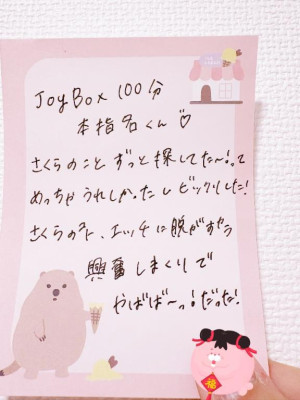 JoyBox 100分
本指名くん♡
さくらのこと ずっと探してた〜!って
めっちゃうれしかったしビックリした!
さくらの下、エッチに脱がすやう
興奮しまくりで
やばば〜っ!だった!
福